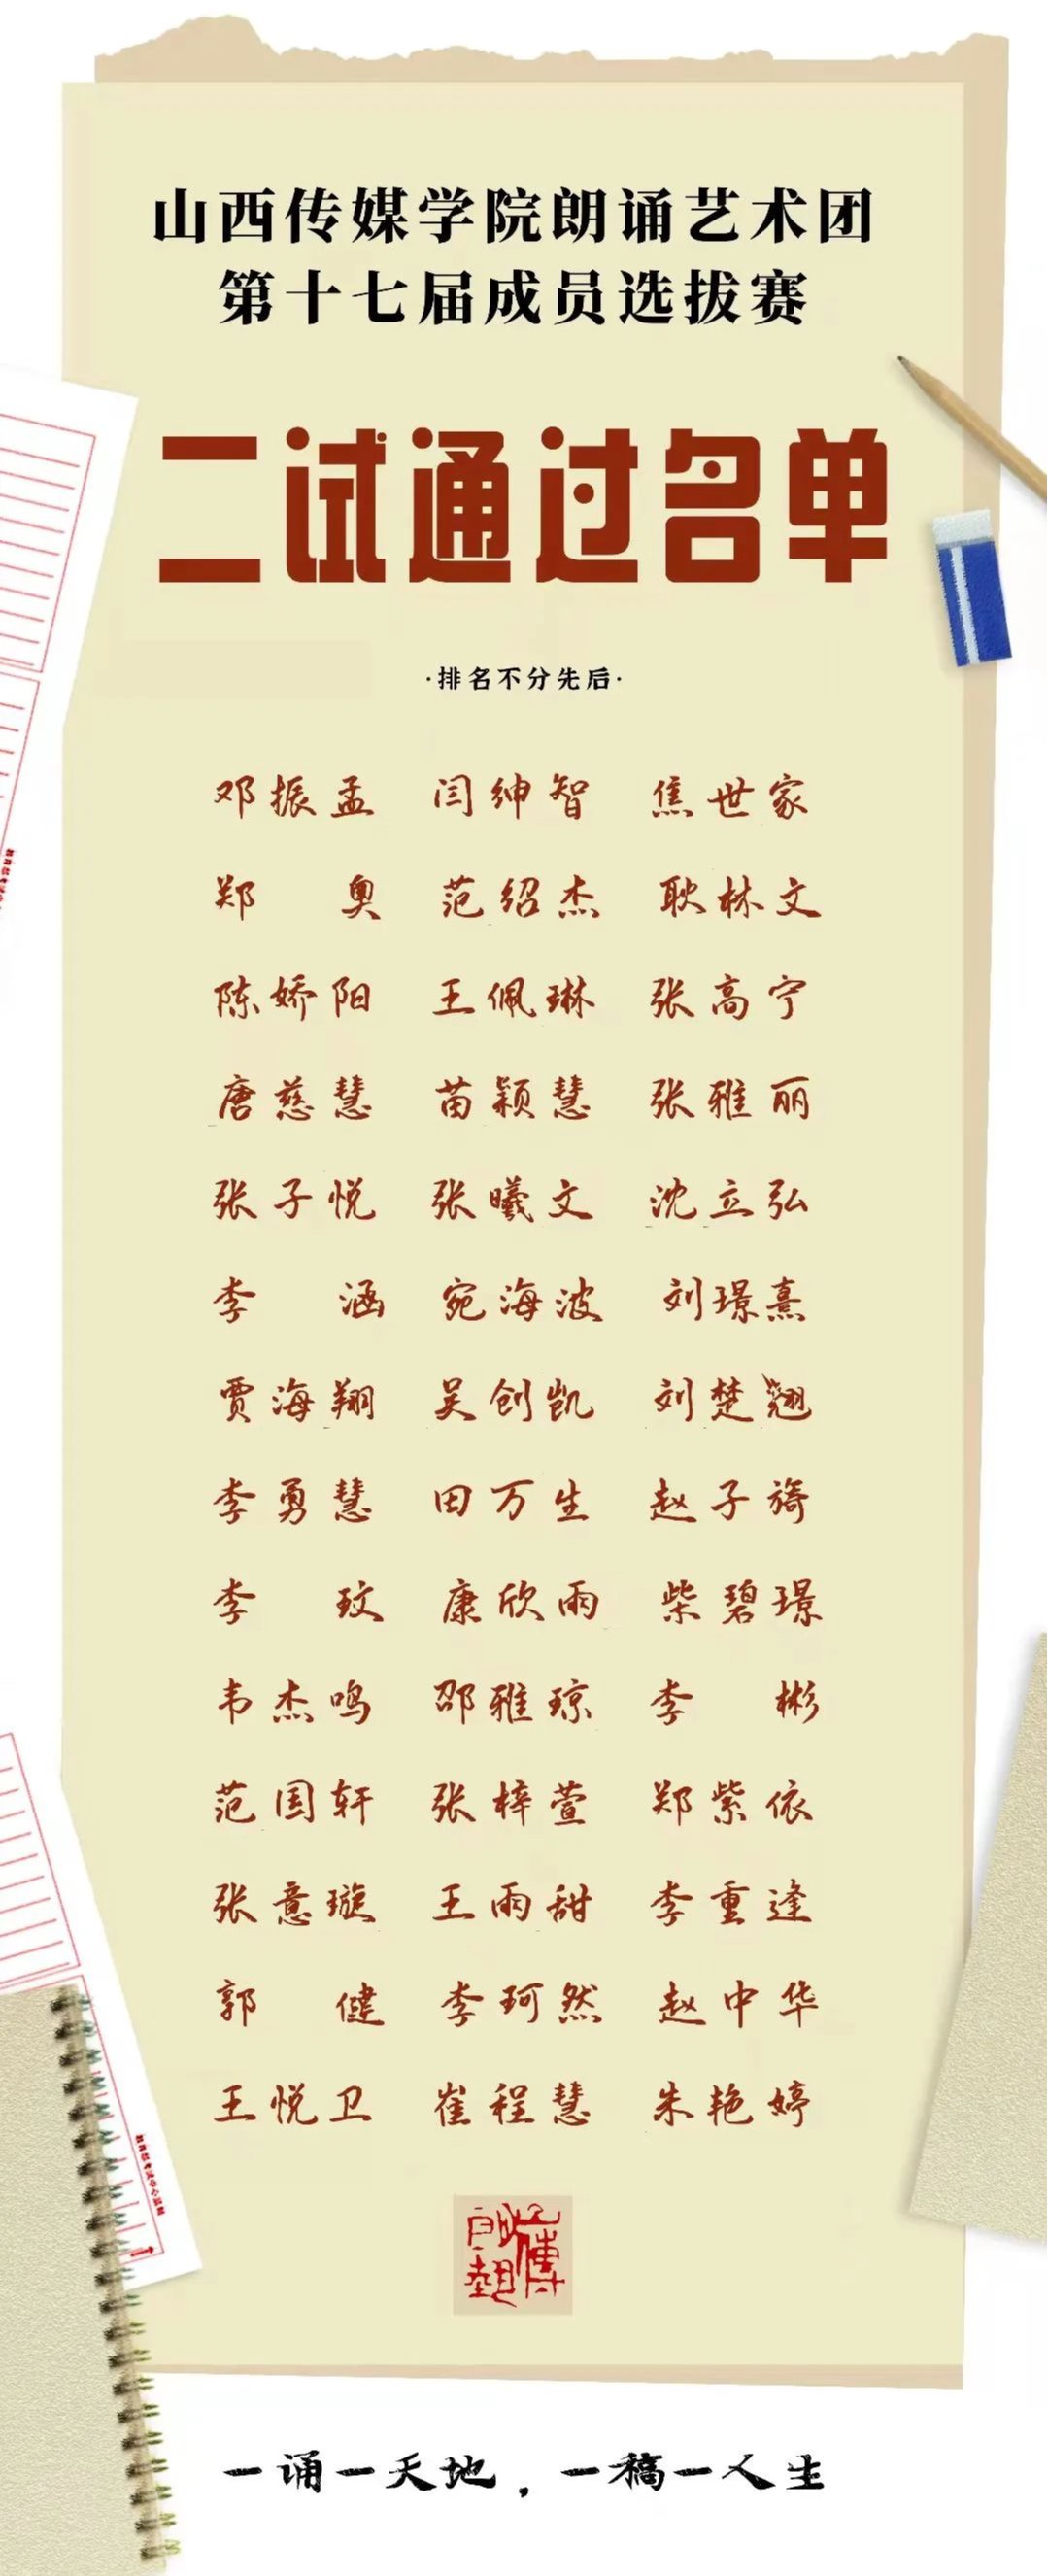 山西传媒学院朗诵艺术团
第十七届成员选拔赛
二试通过名单
·排名不分先后·
邓振孟 闫绅智 焦世家
郑 奥 范绍杰 耿林文
陈娇阳 王佩琳 张高宁
唐慈慧 苗颖慧 张雅丽
张子悦 张曦文 沈立弘
李 涵 宛海波 刘璟熹
贾海翔 吴创凯 刘楚翘
李勇慧 田万生 赵子旖
李 玟 康欣雨 柴碧璟
韦杰鸣 邵雅琼 李 彬
范国轩 张梓萱 郑紫依
张意璇 王雨甜 李重逢
郭 健 李珂然 赵中华
王悦卫 崔程慧 朱艳婷
一诵一天地，一稿一人生